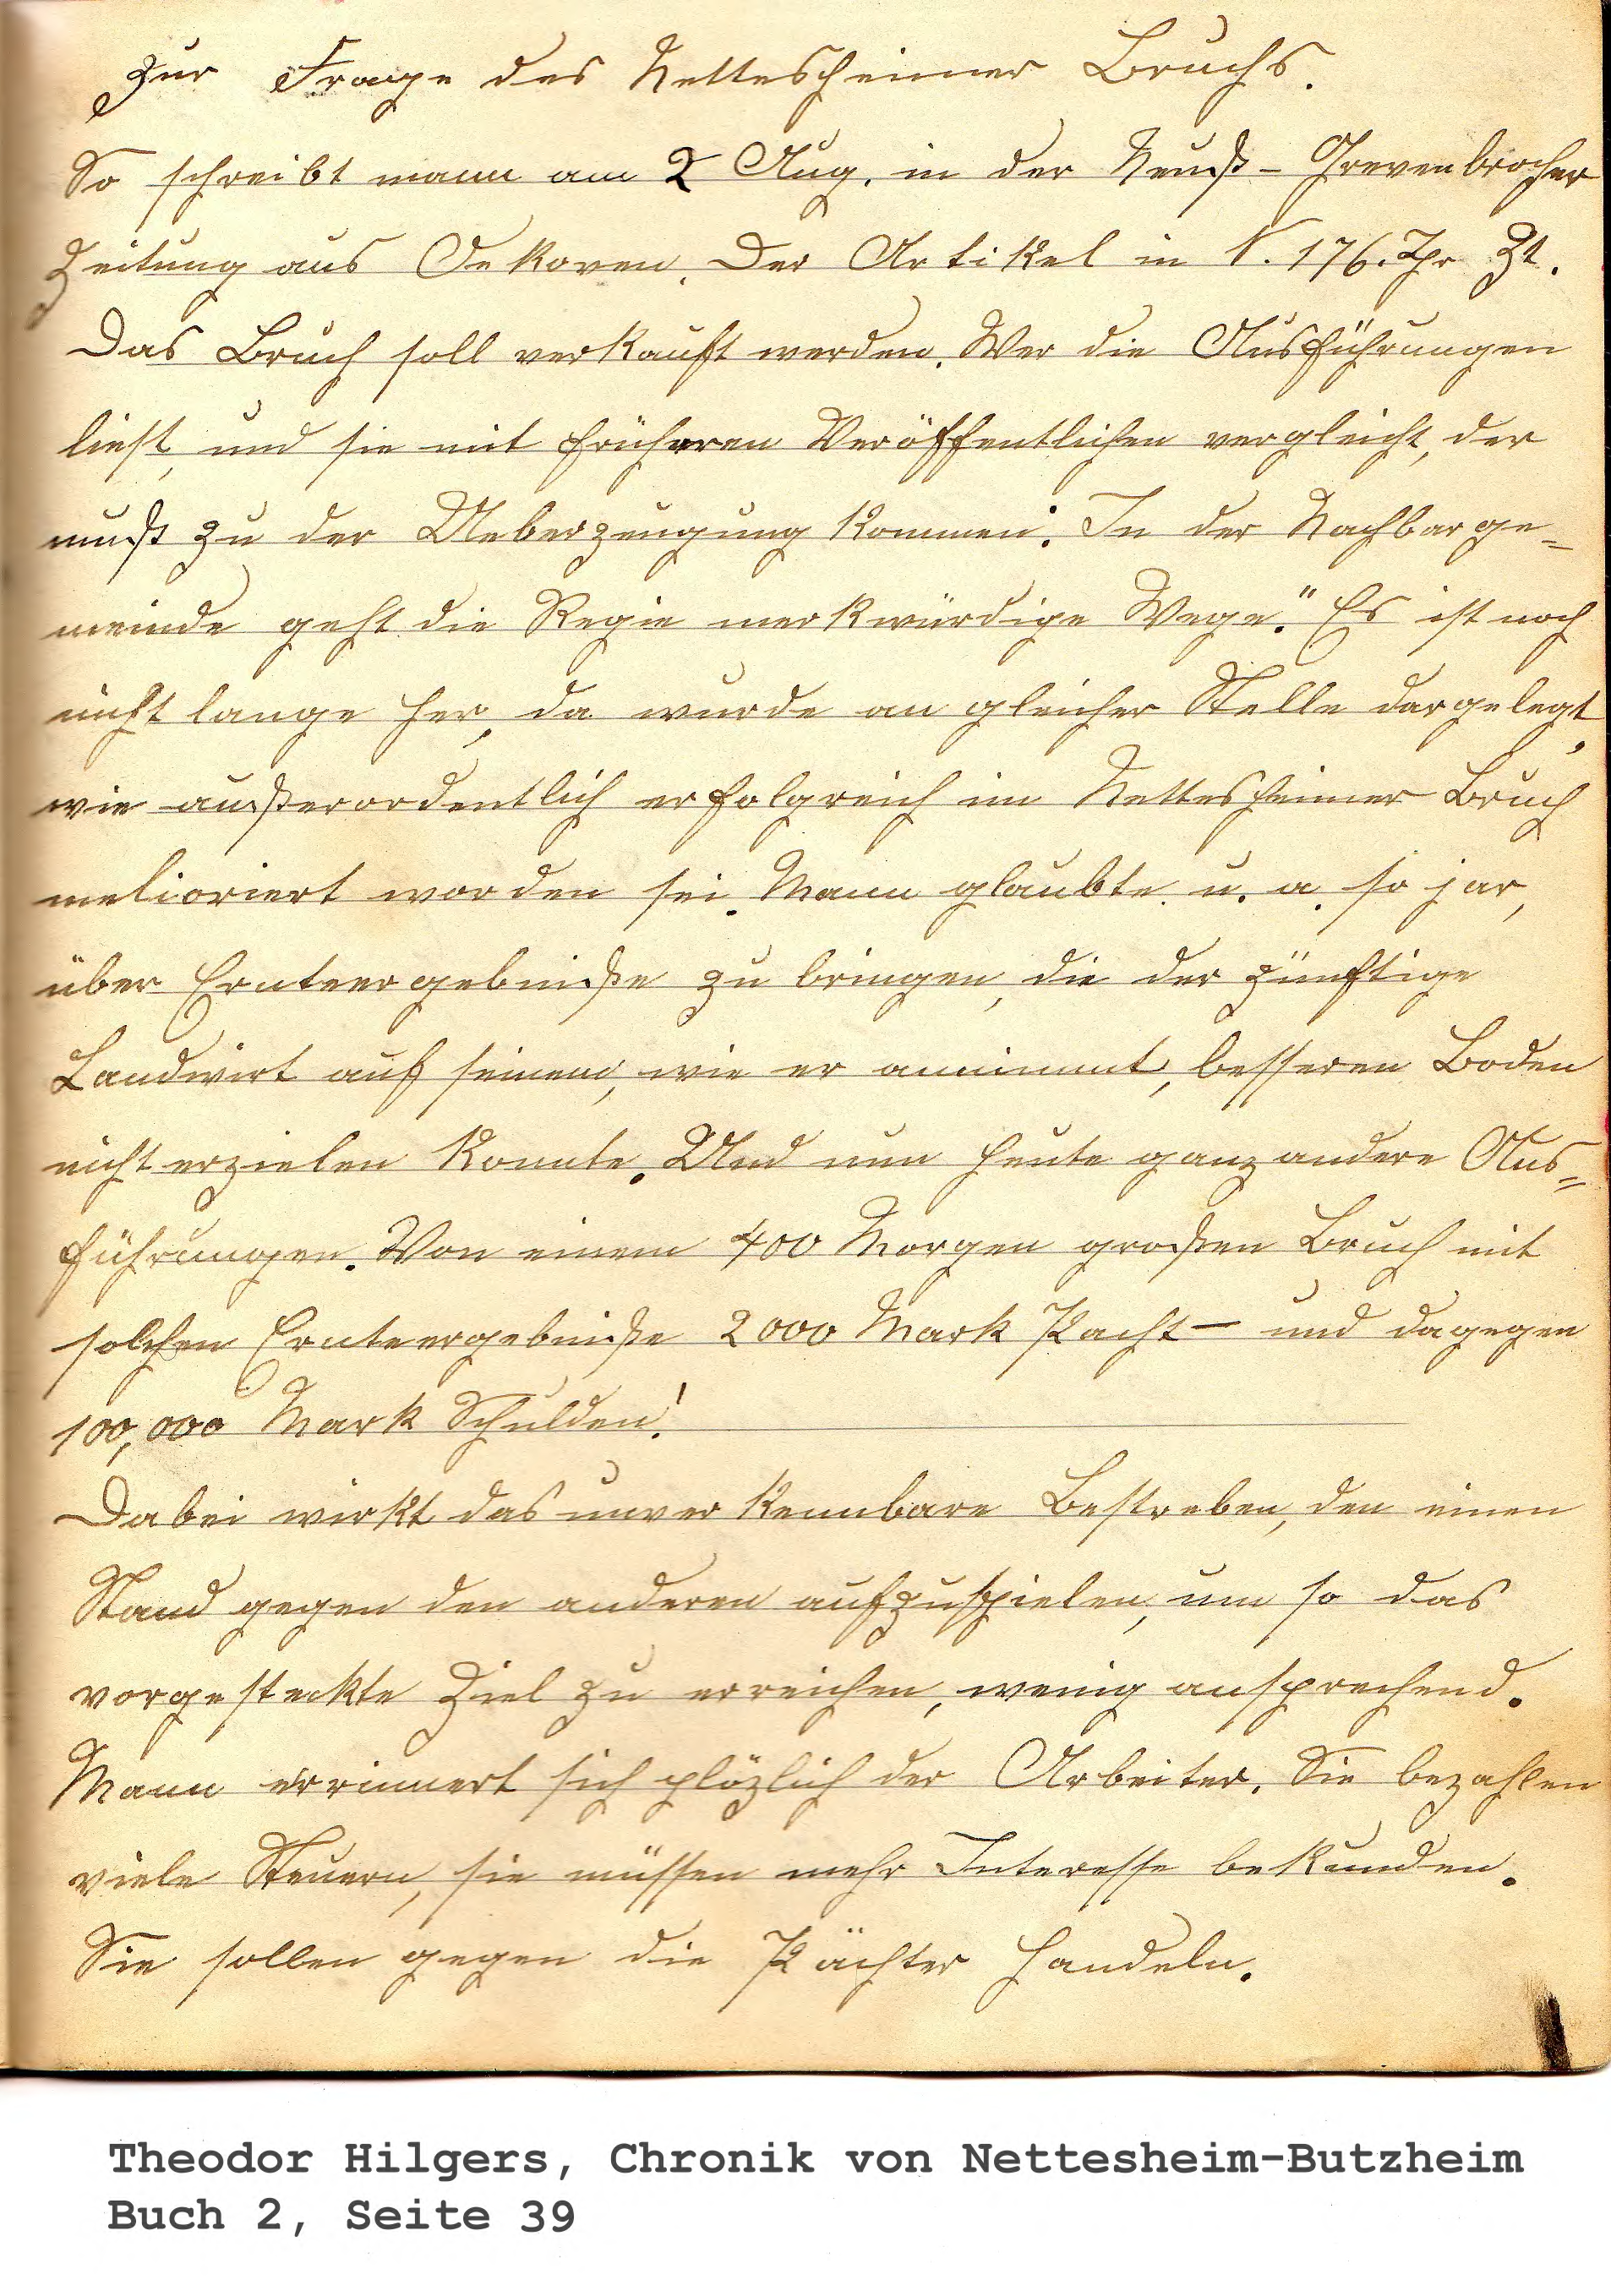 Zur Frage des Nettesheimer Bruchs.
So schreibt mann am 2 Aug. in der Neuß-Grevenbrocher
Zeitung aus Oekoven. Der Artikel in N. 176. Ihr Zt.
Das Bruch soll verkauft werden. Wer die Ausführungen
liest, und sie mit früheren Veröffentlichen vergleicht, der
muß zu der Ueberzeugung kommen: In der Nachbarge=
meinde geht die Regie merkwürdige Wege." Es ist noch
nicht lange her, da wurde an gleicher Stelle dargelegt,
wie außerordentlich erfolgreich im Nettesheimer Bruch
melioriert worden sei. Mann glaubte u. a. so jar,
über Ernteergebniße zu bringen, die der zünftige
Landwirt auf seinem, wie er annimmt, besseren Boden
nicht erzielen konnte. Und nun heute ganz andere Aus=
führungen. Von einem 400 Morgen großen Bruch mit
solchen Ernteergebniße 2000 Mark Pacht – und dagegen
100,000 Mark Schulden!
Dabei wirkt das unverkennbare Bestreben, den einen
Stand gegen den anderen aufzuspielen, um so das
vorgesteckte Ziel zu erreichen, wenig ansprechend.
Mann errinnert sich plözlich der Arbeiter. Sie bezahlen
viele Steuern, sie müssen mehr Interesse bekunden.
Sie sollen gegen die Pächter handeln.
Theodor Hilgers, Chronik von Nettesheim-Butzheim
Buch 2, Seite 39